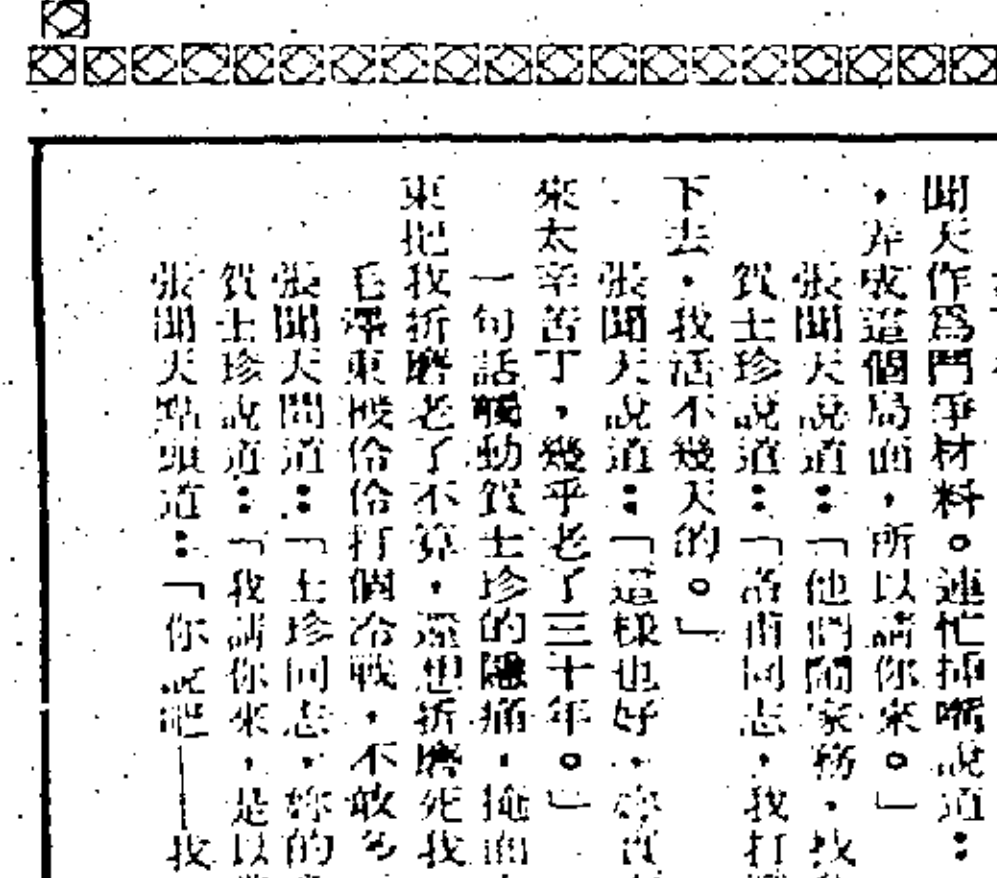 聞天作爲鬥爭材料。連忙插嘴說道：
，弄成這個局面，所以請你來。」
張聞天說道：「他們鬧家務，找
賀士珍說道：「洛甫同志，我打
下去，我活不幾天的。」
張聞天說道：「這樣也好，妳實
來太辛苦了，幾乎老了三十年。」
一句話觸動賀士珍的隱痛，掩面
東把我折磨老了不算，還想折磨死我
毛澤東被伧伧打個冷戰，不敢多
張聞天問道：「士珍同志，妳的
賀士珍說道：「我請你來，是以
張聞天點頭道：「你說吧——我